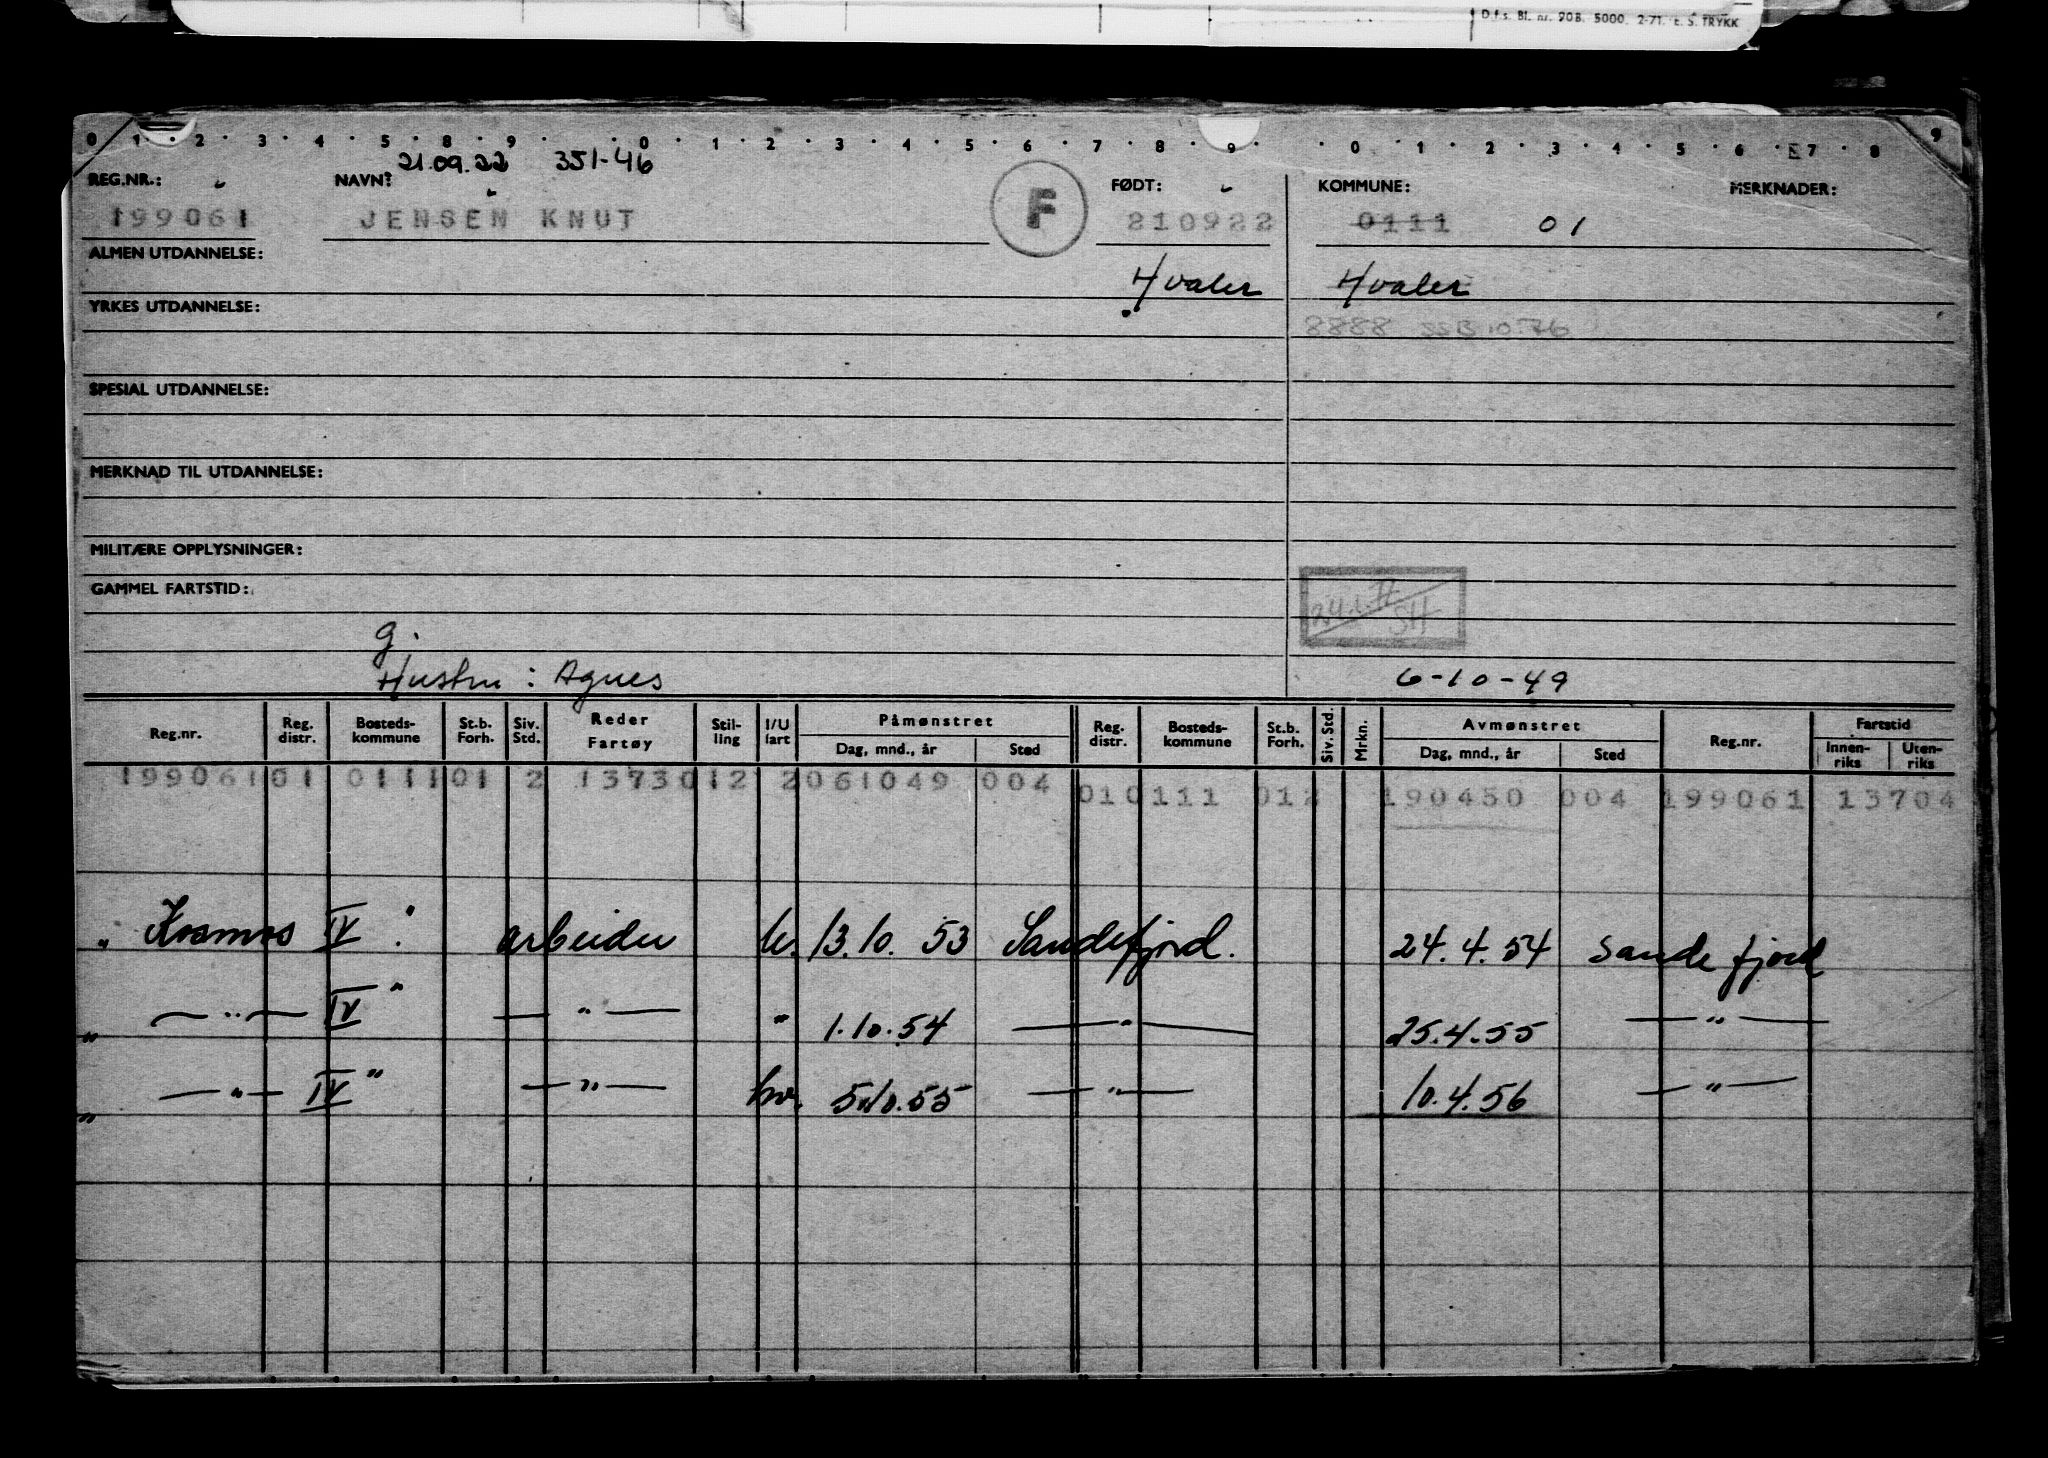 D.f.s. Bl. nr. 20B. 5000. 2-71. E. S. TRYKK
0 1 2 3 4 5 8 9 0 1 2 3 4 5 6 7 8 9 0 1 2 3 4 5 6 7 8 9
21.09.22 351-46
REG.NR.: NAVN: FØDT: KOMMUNE: MERKNADER:
199061 JENSEN KNUT F 210922 0111 01
ALMEN UTDANNELSE:
Hvaler Hvaler
YRKES UTDANNELSE:
8888 SSB 10.76
SPESIAL UTDANNELSE:
MERKNAD TIL UTDANNELSE:
MILITÆRE OPPLYSNINGER:
GAMMEL FARTSTID:
24.1.77
SH
g.
Hustru : Agnes 6-10-49
Reg.nr. Reg. distr. Bosteds-kommune St.b. Forh. Siv. Std. Reder Fartøy Stil-ling I/U fart Påmønstret Dag, mnd., år Sted Reg. distr. Bosteds-kommune St.b. Forh. Siv. Std. Mrkn. Avmønstret Dag, mnd., år Sted Reg.nr. Fartstid Innen-riks Uten-riks
199061 01 0111 01 2 13730 12 2 061049 004 010111 012 190450 004 199061 13704
" Kosmos IV " arbeider 13.10.53 Sandefjord. 24.4.54 Sandefjord
" — " — IV " — " — " 1.10.54 — " — 25.4.55 — " —
" — " — IV " — " — hv. 5.10.55 — " — 10.4.56 — " —